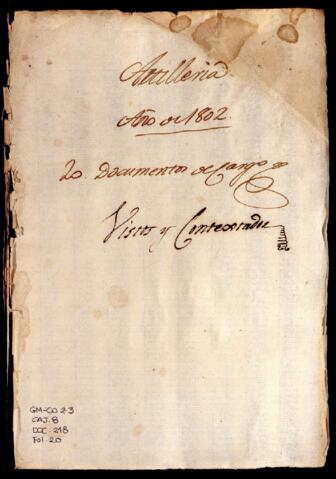 Artilleria
Año de 1802.
20. Documentos de cargo
Vistos y Contextados
GM-CO 2-3
CAJ. 8
DOC. 218
Fol. 20